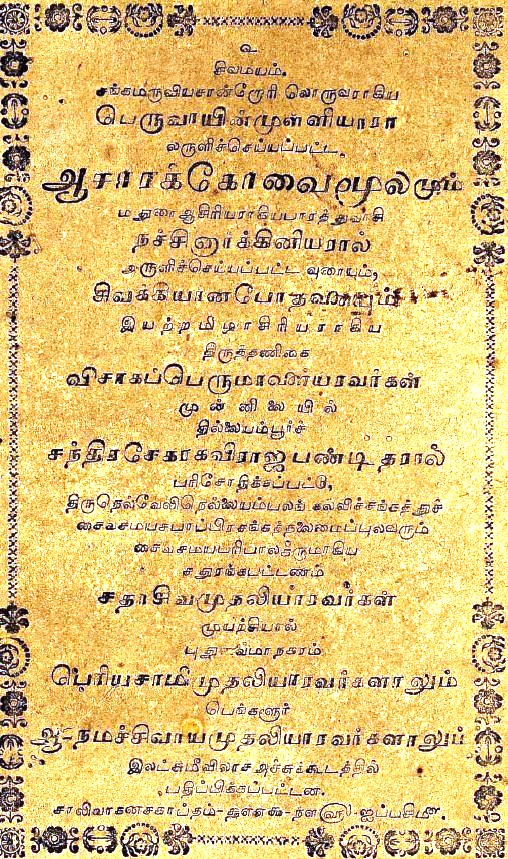 உ
சிவமயம்.
சங்கமருவியசான்றோரி லொருவராகிய
பெருவாயின்முள்ளியாரா
லருளிச்செய்யப்பட்ட,
ஆசாரக்கோவைமூலமும்
மதுரைஆசிரியராகியபாரத்துவாசி
நச்சினார்க்கினியரால்
அருளிச்செய்யப்பட்ட வுரையும்,
இயற்றமிழாசிரியராகிய
திருத்தணிகை
விசாகப்பெருமாளையரவர்கள்
முன்னிலையில்
தில்லையம்பூர்ச்
சந்திரசேகரகவிராஜபண்டிதரால்
பரிசோதிக்கப்பட்டு,
திருநெல்வேலிநெல்லையம்பலங் கல்விச்சங்கத்துச்
சைவசமயசபாப்பிரசங்கத்தலைமைப்புலவரும்
சைவசமயபரிபாலகருமாகிய
சதுரங்கபட்டணம்
சதாசிவமுதலியாரவர்கள்
முயற்சியால்
பெரியசாமிமுதலியாரவர்களாலும்
பெங்களூர்
ஆ-நமச்சிவாயமுதலியாரவர்களாலும்
இலட்சுமீவிலாசஅச்சுக்கூடத்தில்
பதிப்பிக்கப்பட்டன.
சாலிவாகனசகாப்தம்